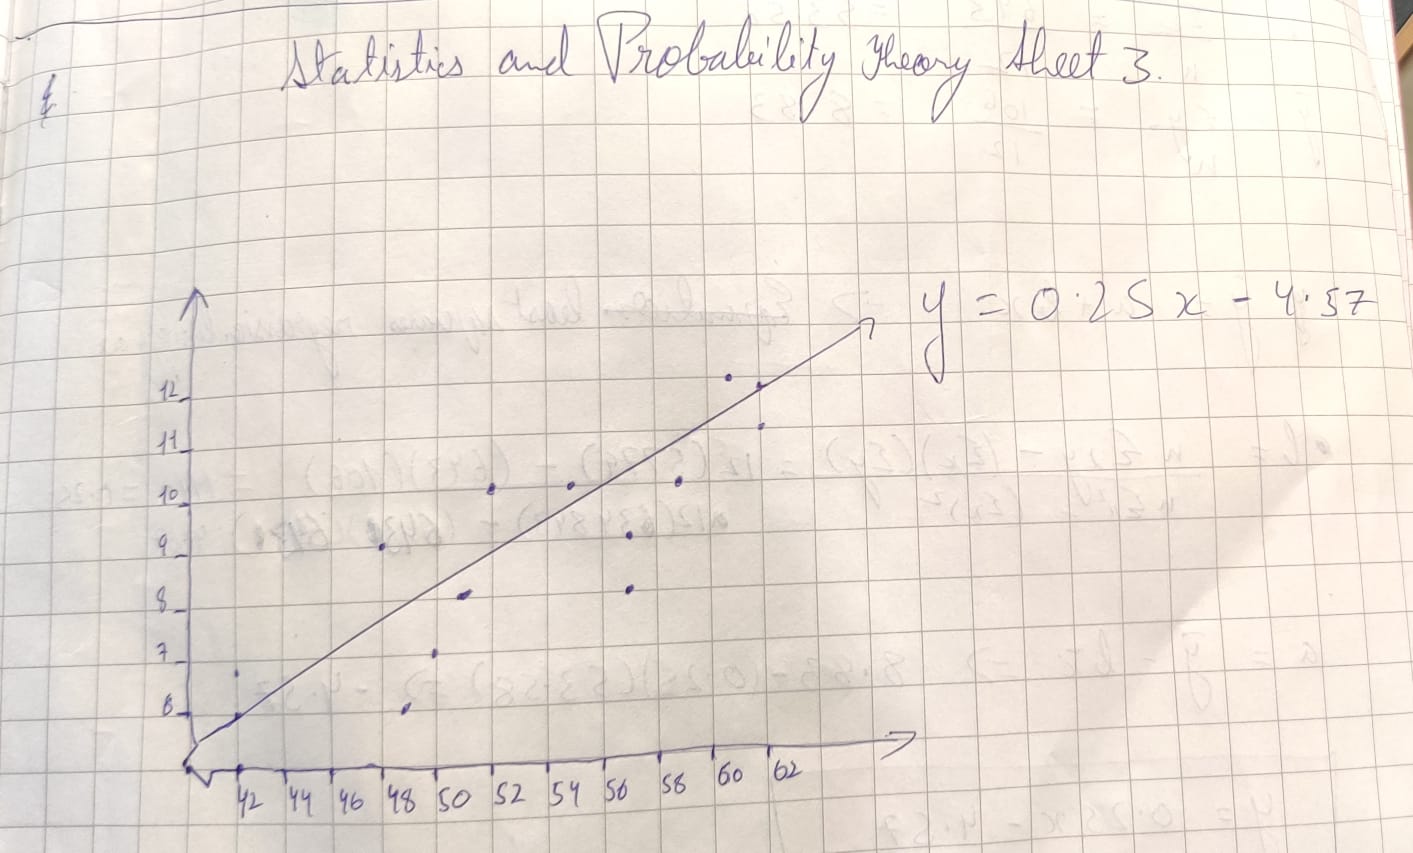 Statistics and Probability Theory Sheet 3.
1
y = 0.25x - 4.57
12
11
10
9
8
7
6
42 44 46 48 50 52 54 56 58 60 62